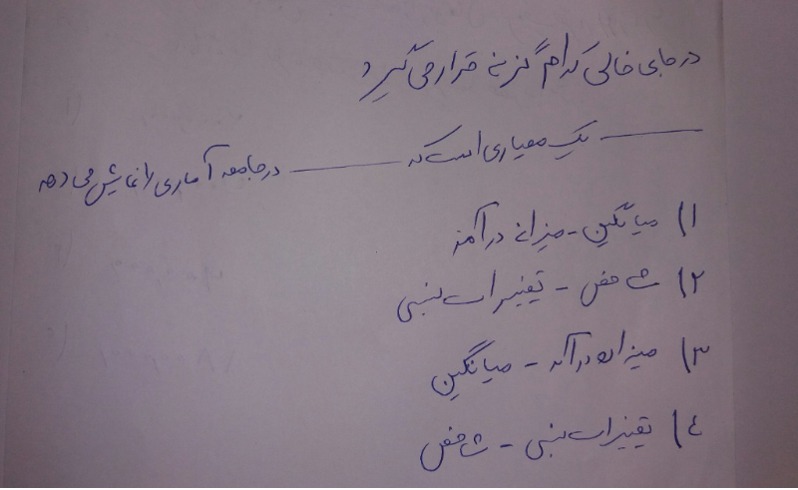 در جای خالی کدام گزینه قرار می گیرد
——— یک معیاری است که ——— در جامعه آماری را نمایش می دهد
۱) میانگین - میزان درآمد
۲) شاخص - تغییرات نسبی
۳) میزان درآمد - میانگین
٤) تغییرات نسبی - شاخص